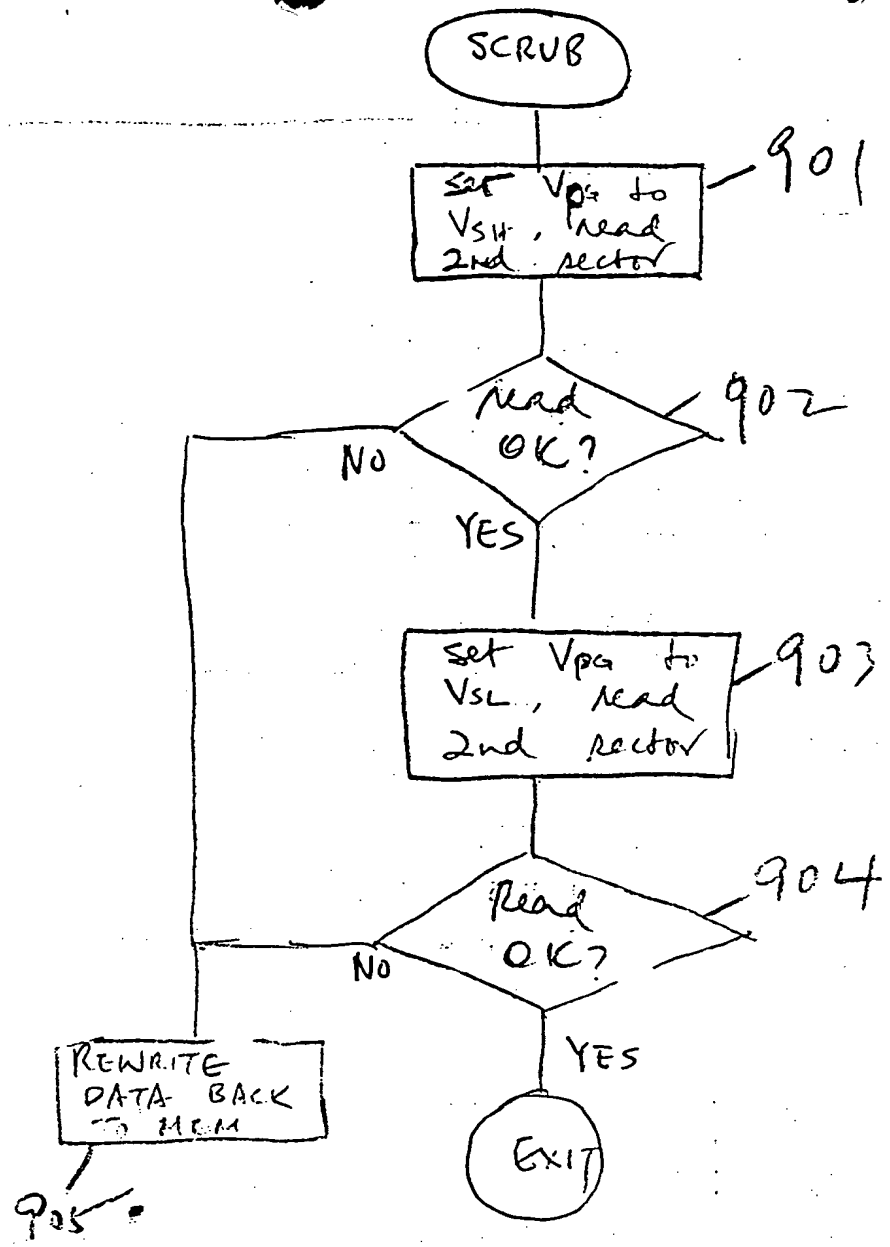 SCRUB
901
set VPG to
VSH, read
2nd sector
902
read
OK?
NO
YES
903
set VPG to
VSL, read
2nd sector
904
Read
OK?
NO
YES
REWRITE
DATA BACK
TO MEM
EXIT
905